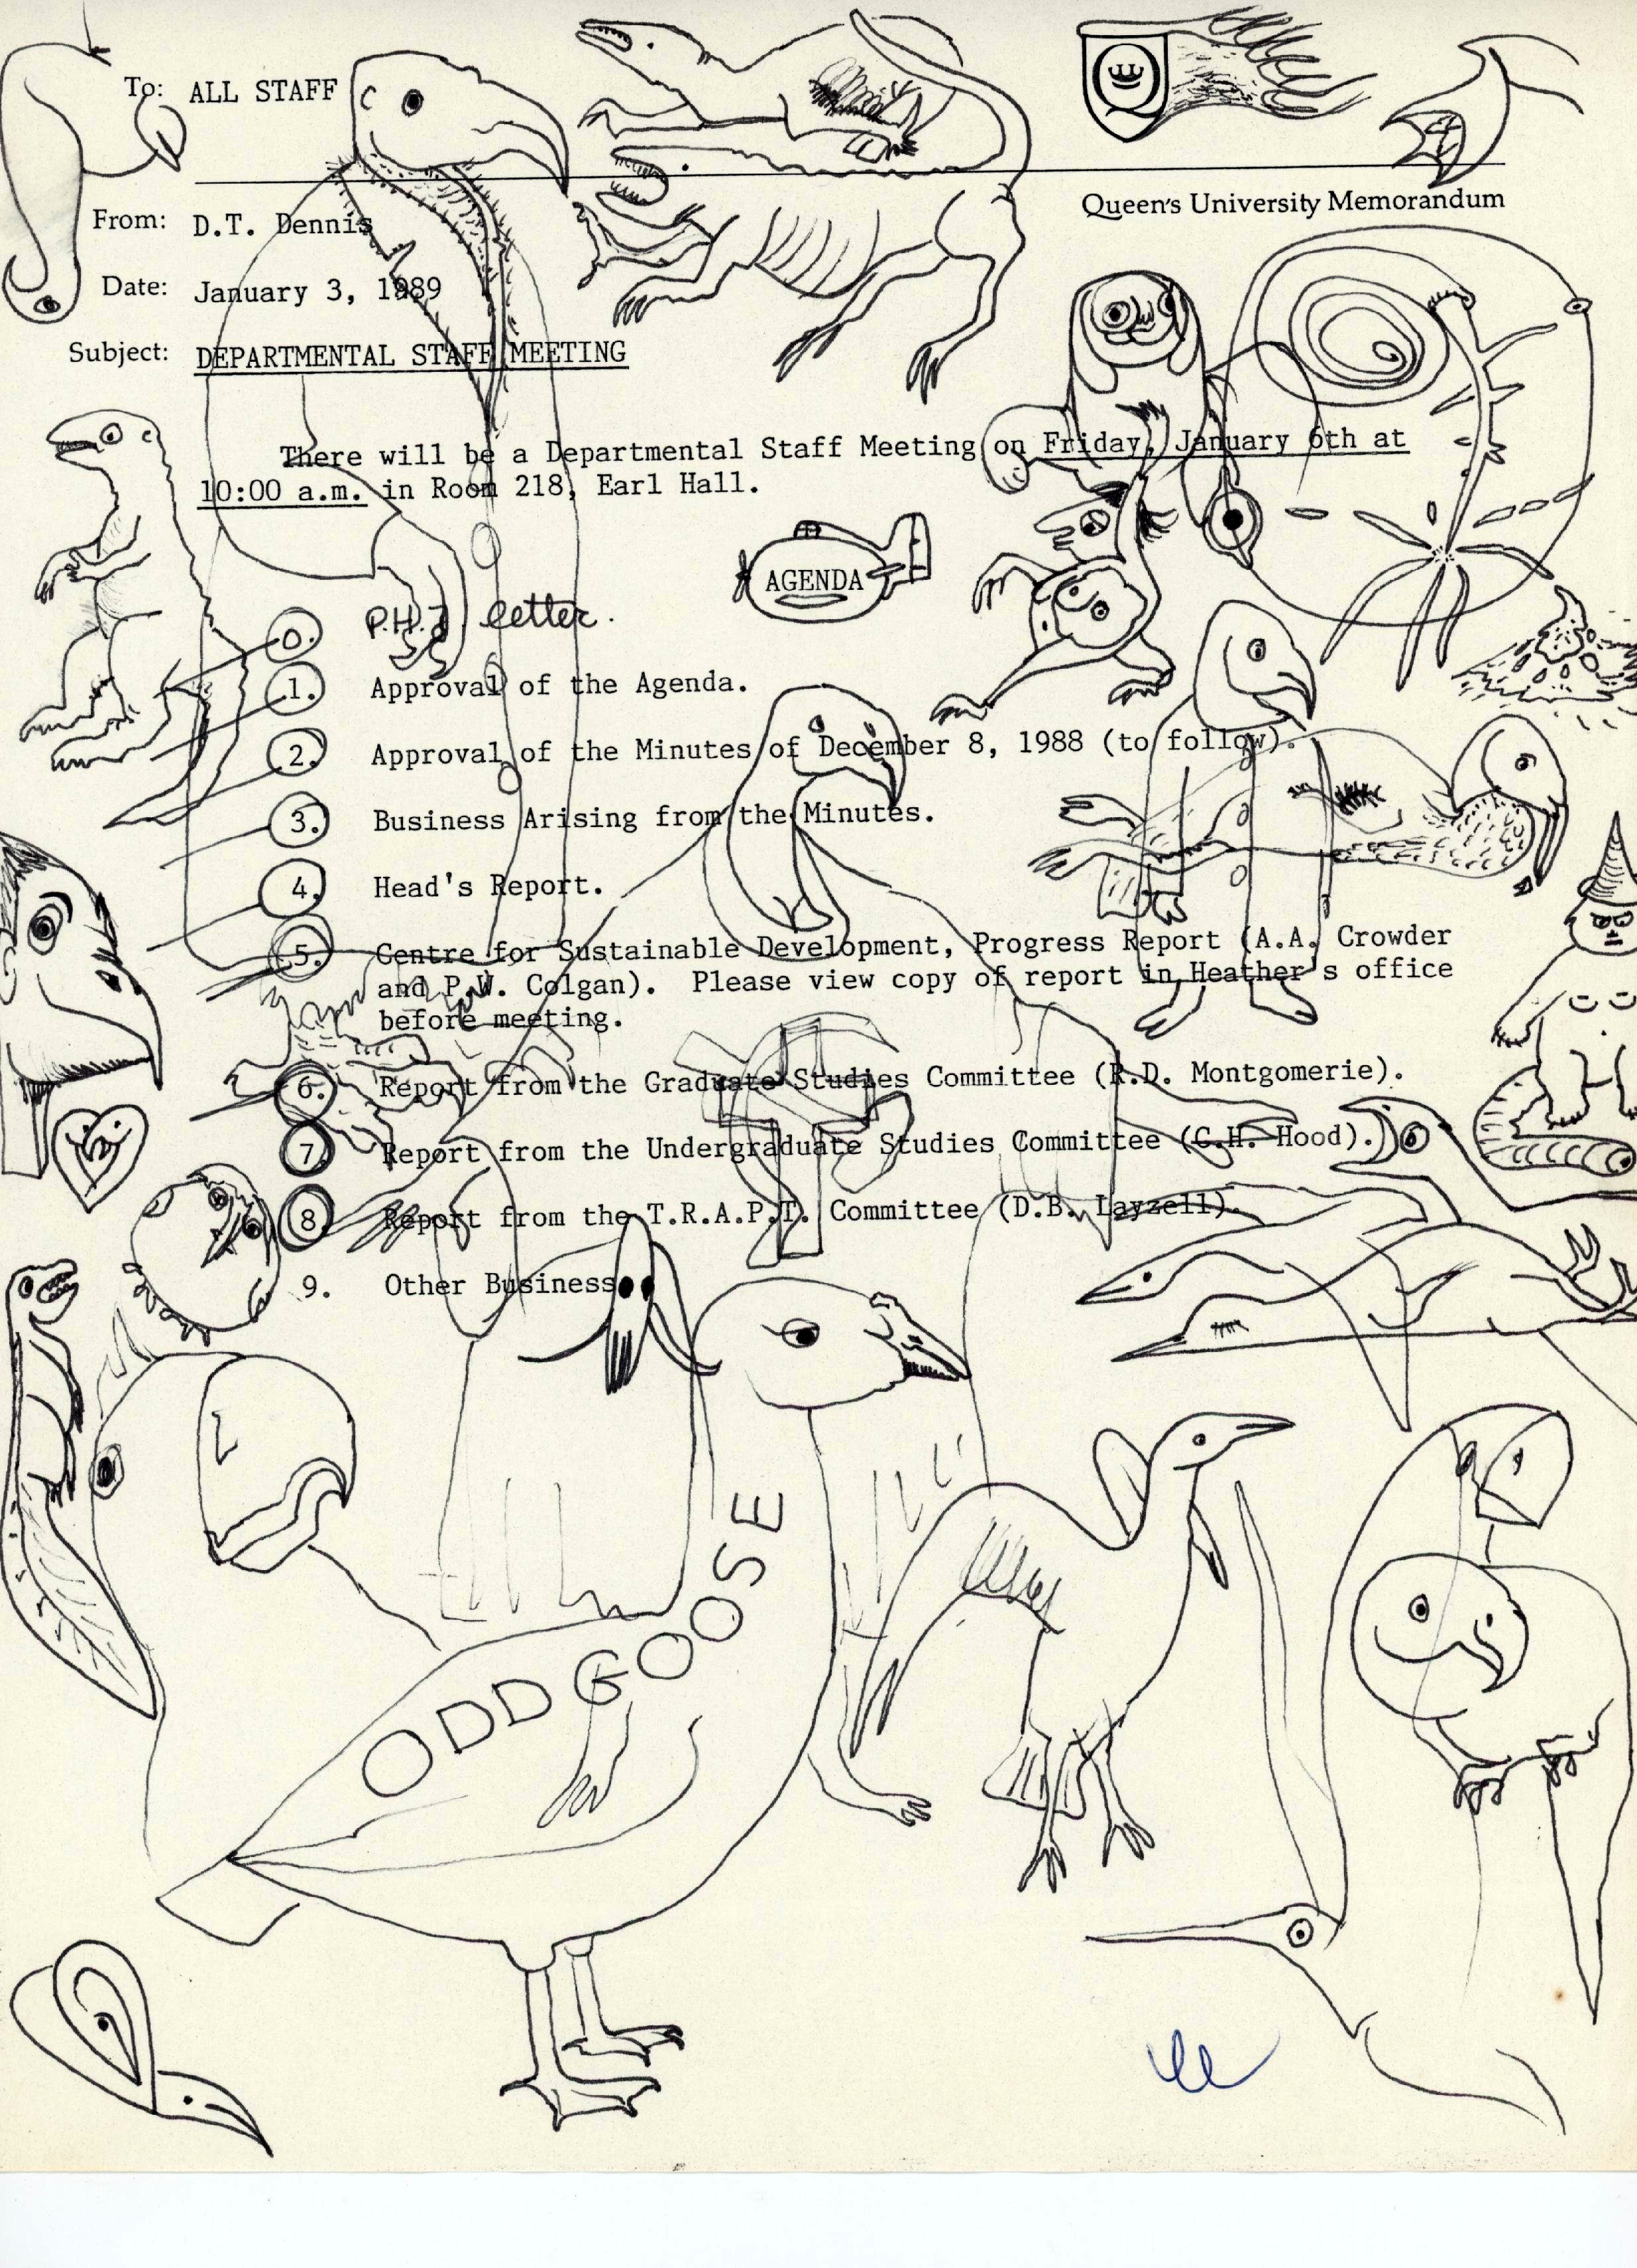 To: ALL STAFF
Queen's University Memorandum
From: D.T. Dennis
Date: January 3, 1989
Subject: DEPARTMENTAL STAFF MEETING
There will be a Departmental Staff Meeting on Friday, January 6th at
10:00 a.m. in Room 218, Earl Hall.
AGENDA
0. P.H.J. letter.
1. Approval of the Agenda.
2. Approval of the Minutes of December 8, 1988 (to follow).
3. Business Arising from the Minutes.
4. Head's Report.
5. Centre for Sustainable Development, Progress Report (A.A. Crowder
and P.W. Colgan). Please view copy of report in Heather's office
before meeting.
6. Report from the Graduate Studies Committee (R.D. Montgomerie).
7. Report from the Undergraduate Studies Committee (C.H. Hood).
8. Report from the T.R.A.P.T. Committee (D.B. Layzell).
9. Other Business
ODD GOOSE